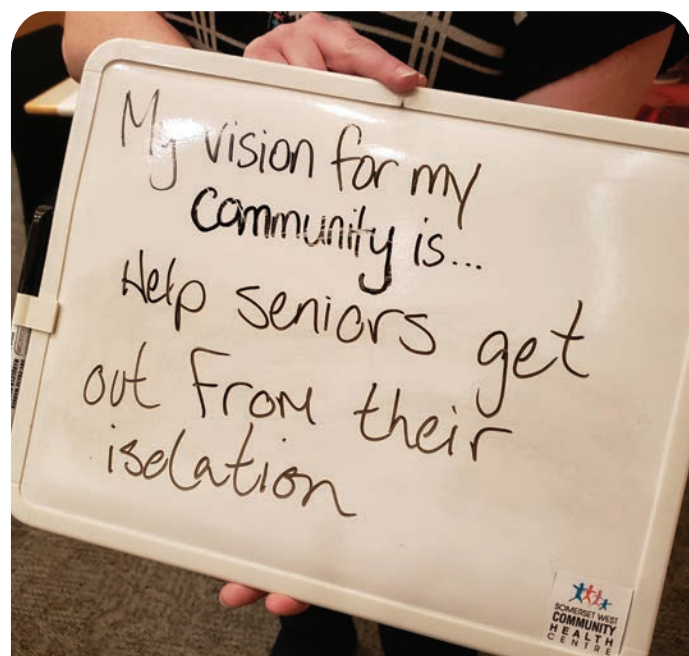 My vision for my
community is...
Help seniors get
out From their
isolation
SOMERSET WEST
COMMUNITY
HEALTH
CENTRE